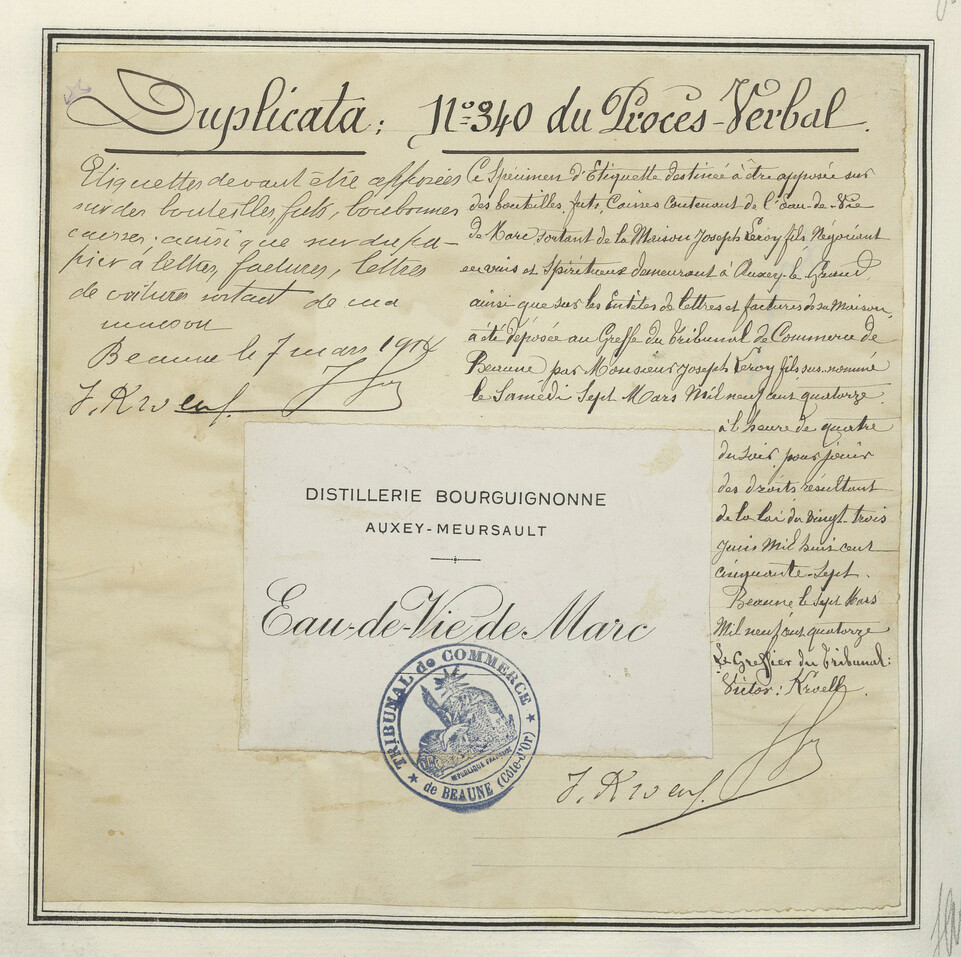 Duplicata : N° 340 du Procès-Verbal.
Etiquettes devant être apposées
sur des bouteilles, futs, bonbonnes
caisses, ainsi que sur du pa-
pier à lettres, factures, lettres
de voitures sortant de ma
maison
Beaune le 7 mars 1914
Ce Spécimen d'Etiquette destinée à être apposée sur
des bouteilles, futs, Caisses contenant de l'eau-de-Vie
de Marc sortant de la Maison Joseph Leroy fils, Négociant
en vins et Spiritueux demeurant à Auxey-le-Grand
ainsi que sur les Entêtes de lettres et factures de sa Maison,
a été déposée au Greffe du Tribunal de Commerce de
Beaune par Monsieur Joseph Leroy fils sus-nommé
le Samedi Sept Mars Mil neuf cent quatorze
à l'heure de quatre
du soir pour jouir
des droits résultant
de la loi du Vingt-trois
Juin Mil huit cent
cinquante-Sept.
Beaune le Sept Mars
Mil neuf cent quatorze
Le Greffier du Tribunal:
Victor: Kroell.
DISTILLERIE BOURGUIGNONNE
AUXEY-MEURSAULT
Eau-de-Vie de Marc
TRIBUNAL de COMMERCE
RÉPUBLIQUE FRANÇAISE
de BEAUNE (Côte-d'Or)